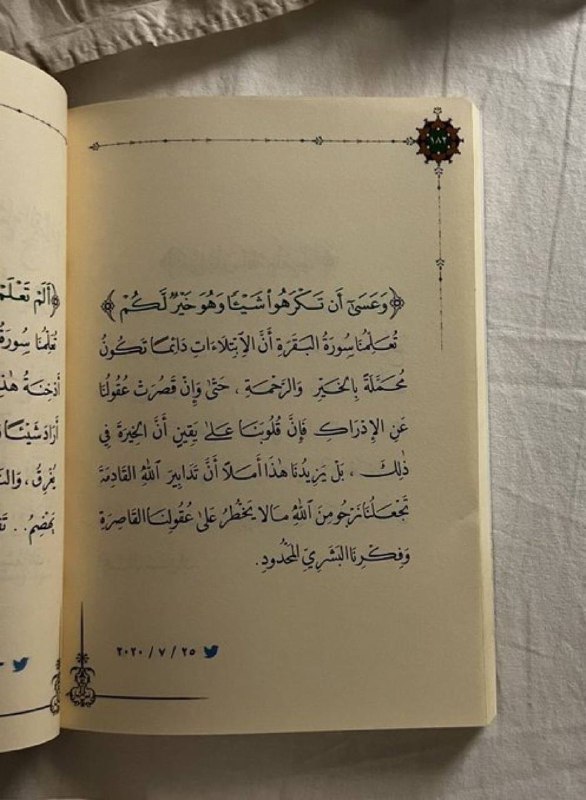 ١٨٢
﴿وَعَسَىٰٓ أَن تَكْرَهُوا۟ شَيْـًٔا وَهُوَ خَيْرٌ لَّكُمْ﴾
تُعَلِّمُنَا سُورَةُ البَقَرَةِ أَنَّ الاِبْتِلَاءَاتِ دَائِمًا تَكُونُ
مُحَمَّلَةً بِالخَيْرِ وَالرَّحْمَةِ ، حَتَّىٰ وَإِنْ قَصُرَتْ عُقُولُنَا
عَنِ الإِدْرَاكِ فَإِنَّ قُلُوبَنَا عَلَىٰ يَقِينٍ أَنَّ الخِيَرَةَ فِي
ذٰلِكَ ، بَلْ يَزِيدُنَا هٰذَا أَمَلاً أَنَّ تَدَابِيرَ اللهِ القَادِمَةَ
تَجْعَلُنَا نَرْجُو مِنَ اللهِ مَالَا يَخْطُرُ عَلَىٰ عُقُولِنَا القَاصِرَةِ
وَفِكْرِنَا البَشَرِيِّ المَحْدُودِ.
٢٠٢٠ / ٧ / ٢٥
﴿أَلَمْ تَعْلَمْ
تُعَلِّمُنَا سُورَةُ